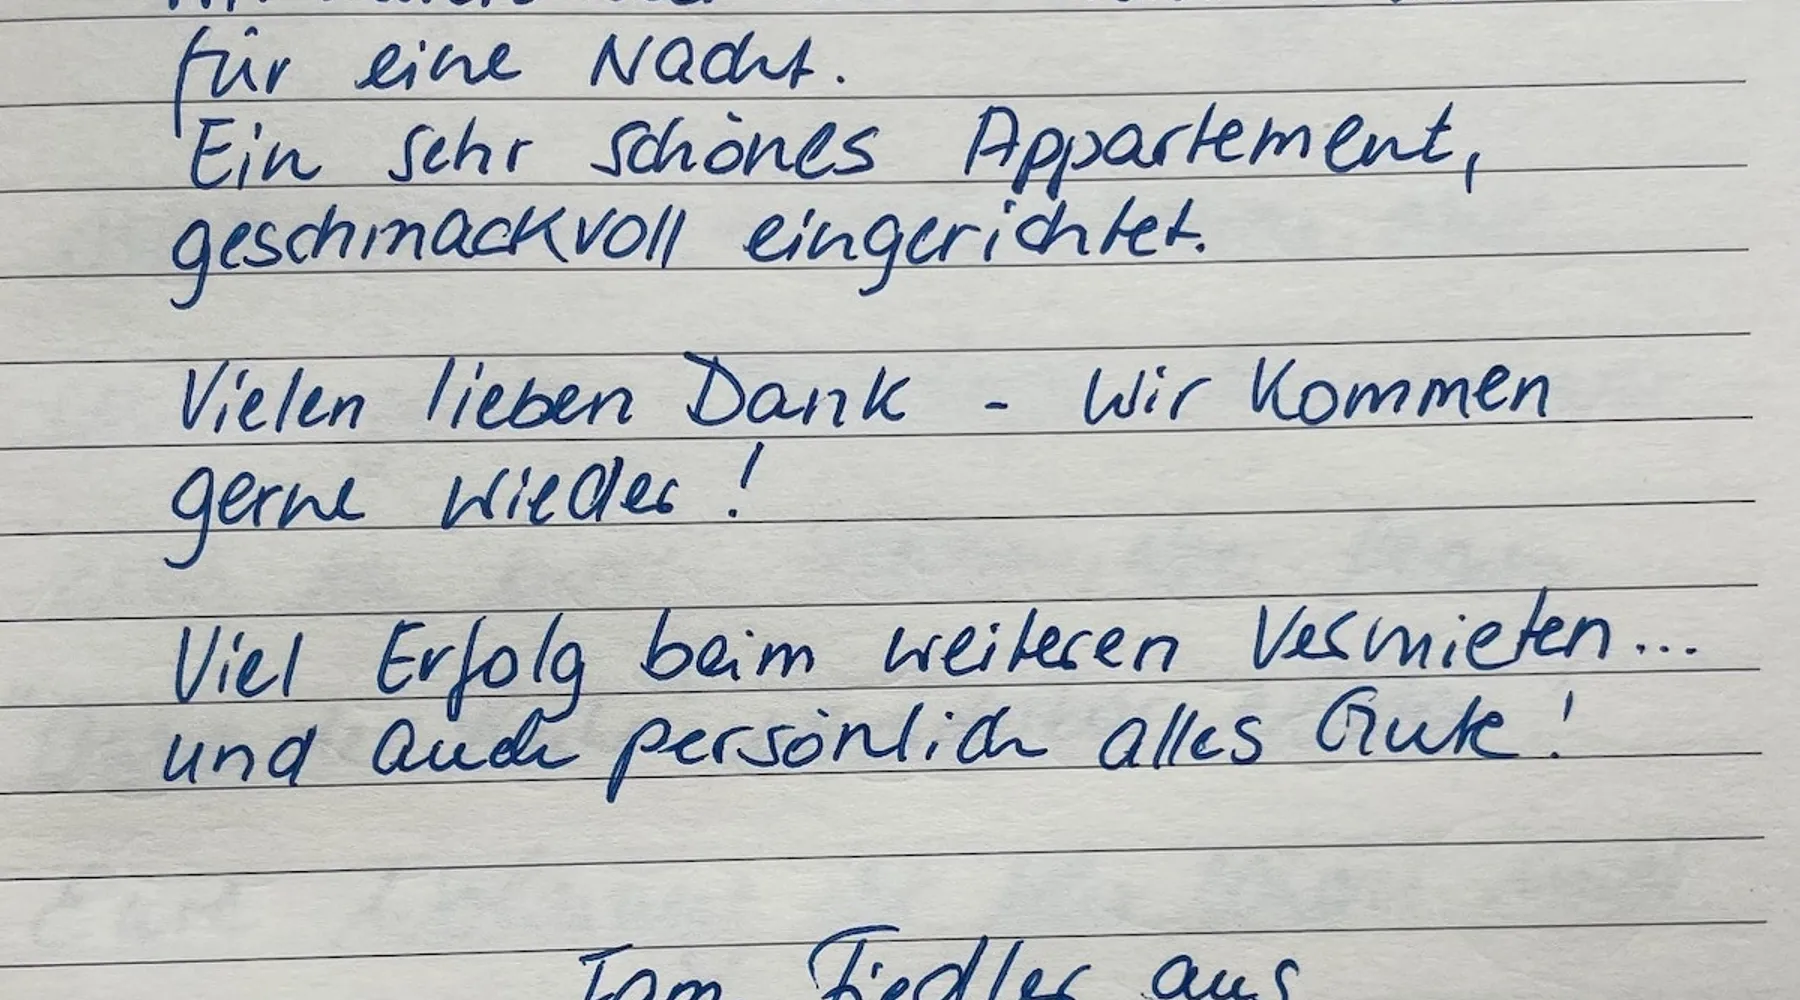 für eine Nacht.
Ein sehr schönes Appartement,
geschmackvoll eingerichtet.
Vielen lieben Dank - Wir kommen
gerne wieder!
Viel Erfolg beim weiteren Vermieten...
und auch persönlich alles Gute!
Fam Fiedler aus